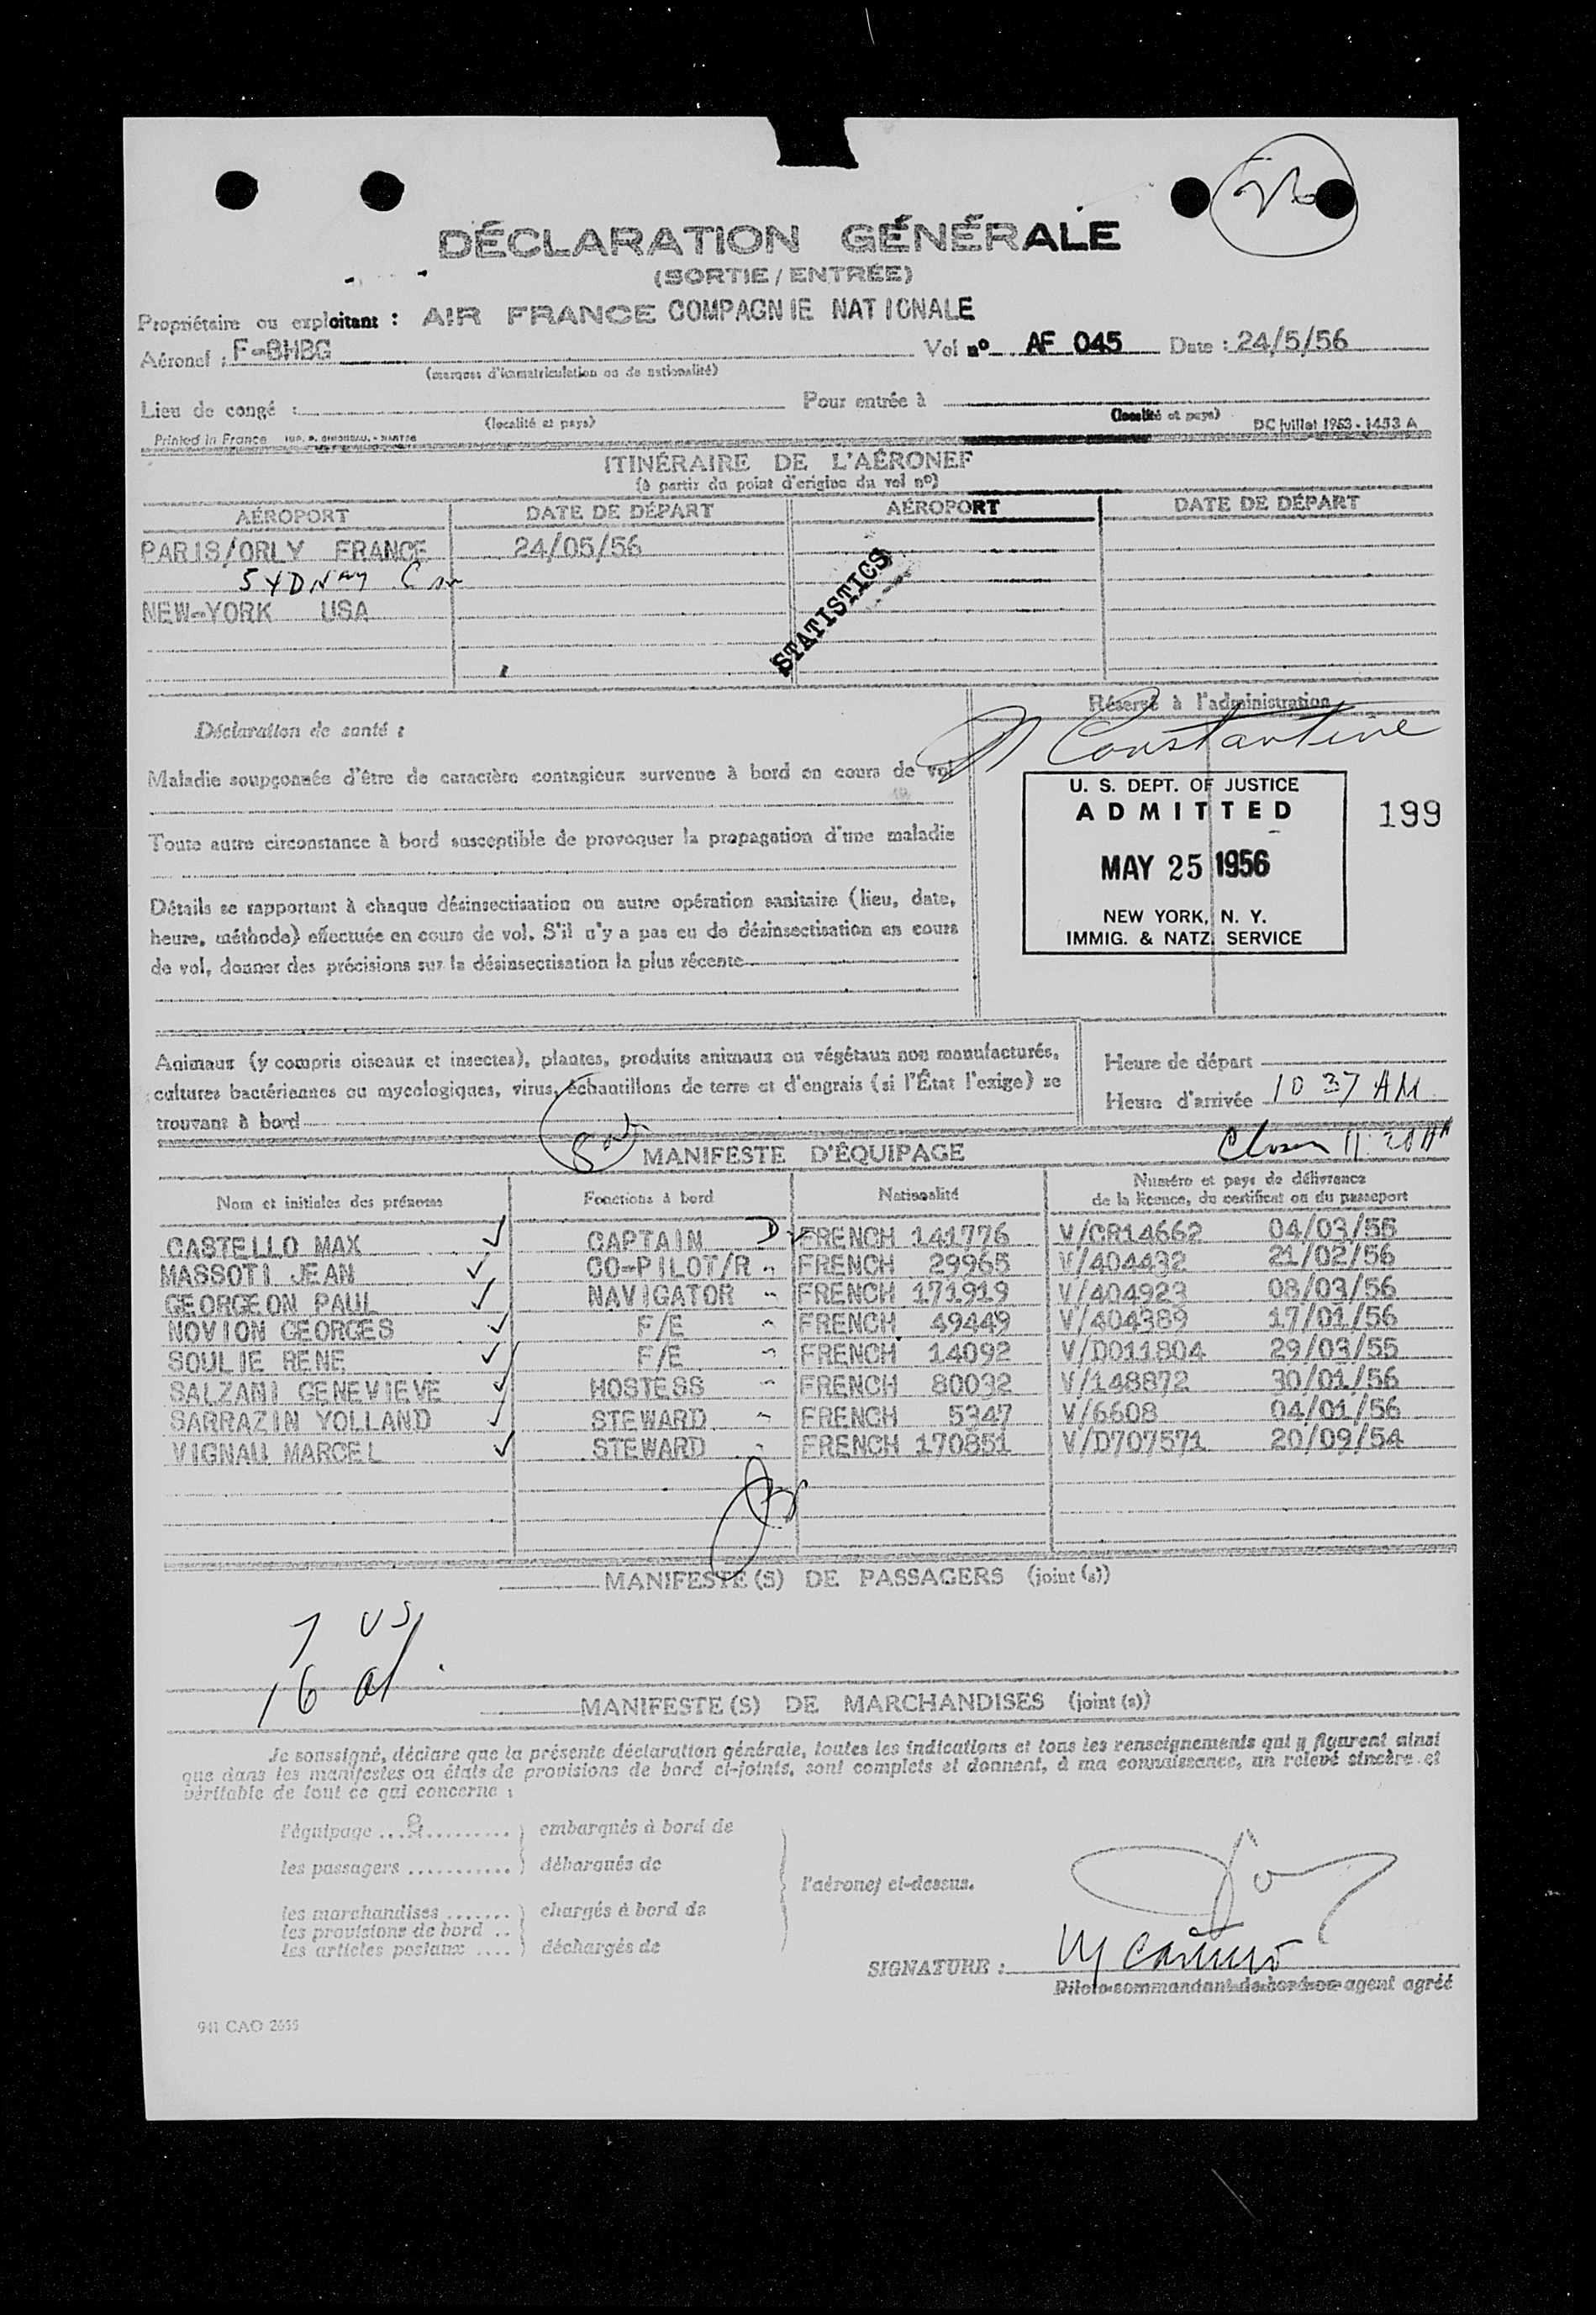 DÉCLARATION GÉNÉRALE
(SORTIE / ENTRÉE)
Propriétaire ou exploitant : AIR FRANCE COMPAGNIE NATIONALE
Aéronef : F-BHBG Vol nº AF 045 Date : 24/5/56
(marques d'immatriculation ou de nationalité)
Lieu de congé : Pour entrée à
(localité et pays) (localité et pays)
Printed in France DC Juillet 1953 - 1453 A
ITINÉRAIRE DE L'AÉRONEF
(à partir du point d'origine du vol nº)
AÉROPORT DATE DE DÉPART AÉROPORT DATE DE DÉPART
PARIS/ORLY FRANCE 24/05/56
SYDNey Can
NEW-YORK USA
STATISTICS
Réservé à l'administration
Déclaration de santé :
Constantine
Maladie soupçonnée d'être de caractère contagieux survenue à bord en cours de vol
U. S. DEPT. OF JUSTICE
ADMITTED 199
Toute autre circonstance à bord susceptible de provoquer la propagation d'une maladie
MAY 25 1956
Détails se rapportant à chaque désinsectisation ou autre opération sanitaire (lieu, date,
heure, méthode) effectuée en cours de vol. S'il n'y a pas eu de désinsectisation en cours
de vol, donner des précisions sur la désinsectisation la plus récente
NEW YORK, N. Y.
IMMIG. & NATZ. SERVICE
Animaux (y compris oiseaux et insectes), plantes, produits animaux ou végétaux non manufacturés,
cultures bactériennes ou mycologiques, virus, échantillons de terre et d'engrais (si l'État l'exige) se
trouvant à bord
Heure de départ
Heure d'arrivée 10 37 AM
11:20 AM
MANIFESTE D'ÉQUIPAGE
Nom et initiales des prénoms Fonctions à bord Nationalité Numéro et pays de délivrance
de la licence, du certificat ou du passeport
CASTELLO MAX CAPTAIN FRENCH 141776 V/CR14662 04/03/55
MASSOTI JEAN CO-PILOT/R FRENCH 29965 V/404432 21/02/56
GEORGEON PAUL NAVIGATOR FRENCH 171919 V/404923 08/03/56
NOVION GEORGES F/E FRENCH 49449 V/404389 17/01/56
SOULIE RENE F/E FRENCH 14092 V/D011804 29/03/55
SALZANI GENEVIEVE HOSTESS FRENCH 80032 V/148872 30/01/56
SARRAZIN YOLLAND STEWARD FRENCH 5347 V/6608 04/01/56
VIGNAU MARCEL STEWARD FRENCH 170851 V/D707571 20/09/54
MANIFESTE (S) DE PASSAGERS (joint (s))
7 US
16 al
MANIFESTE (S) DE MARCHANDISES (joint (s))
Je soussigné, déclare que la présente déclaration générale, toutes les indications et tous les renseignements qui y figurent ainsi
que dans les manifestes ou états de provisions de bord ci-joints, sont complets et donnent, à ma connaissance, un relevé sincère et
véritable de tout ce qui concerne :
l'équipage ...8......... ) embarqués à bord de
les passagers ........... ) débarqués de
l'aéronef ci-dessus.
les marchandises ....... ) chargés à bord de
les provisions de bord ..
les articles postaux .... ) déchargés de
SIGNATURE :
Pilote commandant de bord ou agent agréé
941 CAO 2655